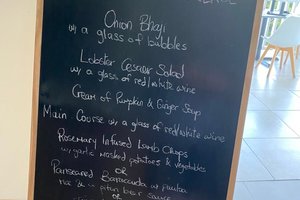 Onion Bhaji
w/ a glass of bubbles
Lobster Ceasar Salad
w/ a glass of red/white wine
Cream of Pumpkin & Ginger Soup
Main Course w/ a glass of red/white wine
Rosemary Infused Lamb Chops
w/ garlic mashed potatoes & vegetables
OR
Panseared Barracuda w/
rice & sauce
OR